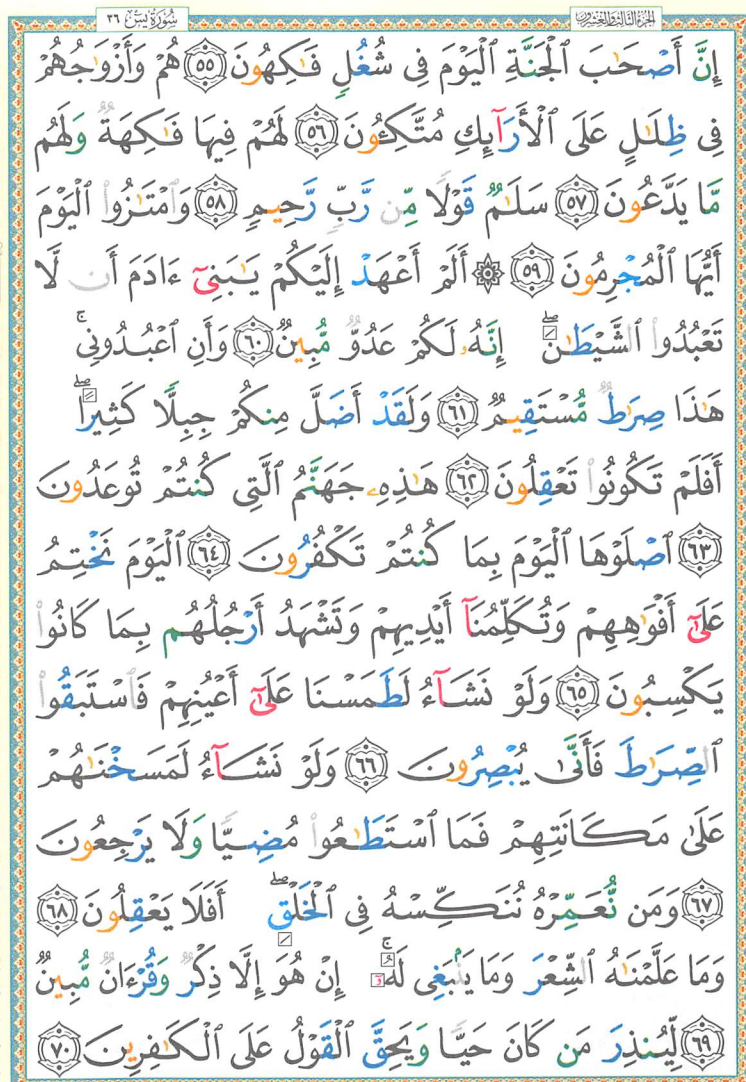 سُورَةُ يسٓ ٣٦
الجزء الثالث والعشرون
إِنَّ أَصْحَٰبَ ٱلْجَنَّةِ ٱلْيَوْمَ فِى شُغُلٍ فَٰكِهُونَ ۝٥٥ هُمْ وَأَزْوَٰجُهُمْ
فِى ظِلَٰلٍ عَلَى ٱلْأَرَآئِكِ مُتَّكِـُٔونَ ۝٥٦ لَهُمْ فِيهَا فَٰكِهَةٌ وَلَهُم
مَّا يَدَّعُونَ ۝٥٧ سَلَٰمٌ قَوْلًا مِّن رَّبٍّ رَّحِيمٍ ۝٥٨ وَٱمْتَٰزُوا۟ ٱلْيَوْمَ
أَيُّهَا ٱلْمُجْرِمُونَ ۝٥٩ ۞ أَلَمْ أَعْهَدْ إِلَيْكُمْ يَٰبَنِىٓ ءَادَمَ أَن لَّا
تَعْبُدُوا۟ ٱلشَّيْطَٰنَ ۖ إِنَّهُۥ لَكُمْ عَدُوٌّ مُّبِينٌ ۝٦٠ وَأَنِ ٱعْبُدُونِى ۚ
هَٰذَا صِرَٰطٌ مُّسْتَقِيمٌ ۝٦١ وَلَقَدْ أَضَلَّ مِنكُمْ جِبِلًّا كَثِيرًا ۖ
أَفَلَمْ تَكُونُوا۟ تَعْقِلُونَ ۝٦٢ هَٰذِهِۦ جَهَنَّمُ ٱلَّتِى كُنتُمْ تُوعَدُونَ
۝٦٣ ٱصْلَوْهَا ٱلْيَوْمَ بِمَا كُنتُمْ تَكْفُرُونَ ۝٦٤ ٱلْيَوْمَ نَخْتِمُ
عَلَىٰٓ أَفْوَٰهِهِمْ وَتُكَلِّمُنَآ أَيْدِيهِمْ وَتَشْهَدُ أَرْجُلُهُم بِمَا كَانُوا۟
يَكْسِبُونَ ۝٦٥ وَلَوْ نَشَآءُ لَطَمَسْنَا عَلَىٰٓ أَعْيُنِهِمْ فَٱسْتَبَقُوا۟
ٱلصِّرَٰطَ فَأَنَّىٰ يُبْصِرُونَ ۝٦٦ وَلَوْ نَشَآءُ لَمَسَخْنَٰهُمْ
عَلَىٰ مَكَانَتِهِمْ فَمَا ٱسْتَطَٰعُوا۟ مُضِيًّا وَلَا يَرْجِعُونَ
۝٦٧ وَمَن نُّعَمِّرْهُ نُنَكِّسْهُ فِى ٱلْخَلْقِ ۖ أَفَلَا يَعْقِلُونَ ۝٦٨
وَمَا عَلَّمْنَٰهُ ٱلشِّعْرَ وَمَا يَنۢبَغِى لَهُۥٓ ۚ إِنْ هُوَ إِلَّا ذِكْرٌ وَقُرْءَانٌ مُّبِينٌ
۝٦٩ لِّيُنذِرَ مَن كَانَ حَيًّا وَيَحِقَّ ٱلْقَوْلُ عَلَى ٱلْكَٰفِرِينَ ۝٧٠